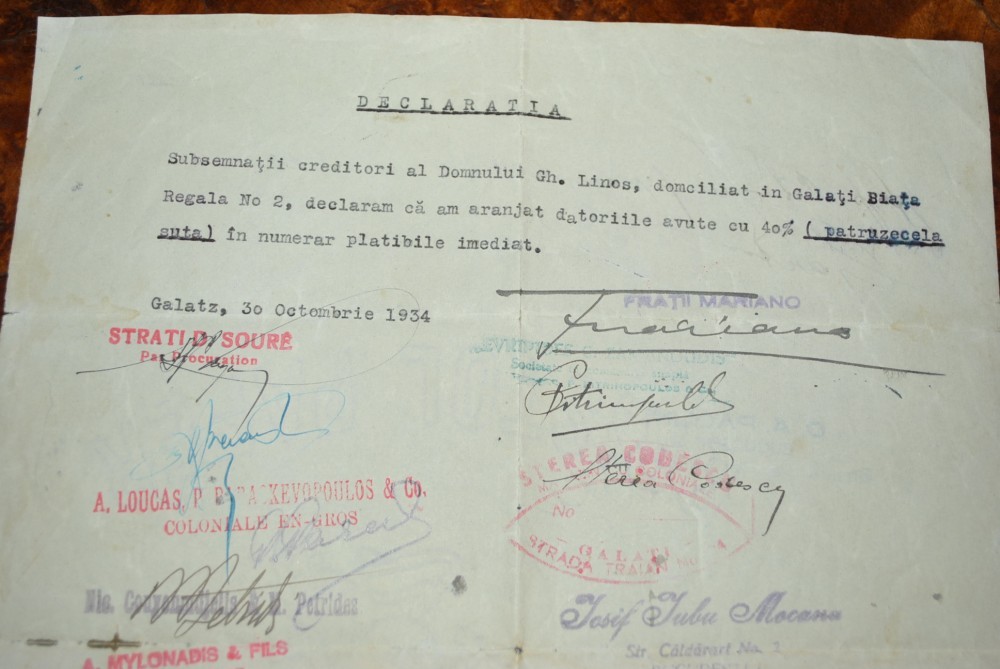 DECLARATIA
Subsemnaţii creditori al Domnului Gh. Linos, domciliat in Galaţi Biaţa
Regala No 2, declaram că am aranjat datoriile avute cu 4o% ( patruzecela
suta) în numerar platibile imediat.
Galatz, 3o Octombrie 1934
FRAŢII MARIANO
Mariano
STRATI D. SOURÉ
Par Procuration
A. LOUCAS, P. PARASKEVOPOULOS & Co.
COLONIALE EN-GROS
STEREA
COLONIALE
Sterea
No
GALAŢI
STRADA TRAIAN No
Nic. & M. Petridez
Iosif Iubu Mocanu
Str. Căldărari No. 1
A. MYLONADIS & FILS